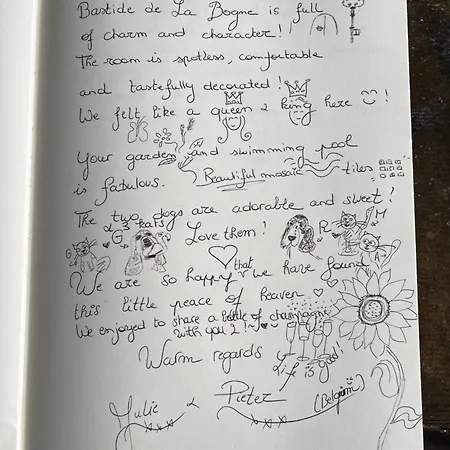 Bastide de La Bogne is full
of charm and character!
The room is spotless, comfortable
and tastefully decorated!
We felt like a queen & king here !
Your garden and swimming pool
is fabulous. Beautiful mosaic tiles
The two dogs are adorable and sweet!
& 3 kats
G Love them! R M
We are so happy that we have found
this little peace of heaven
We enjoyed to share a bottle of champagne
with you 2!
Warm regards
Life is good!
Julie & Pieter (Belgium)
xxx xxx